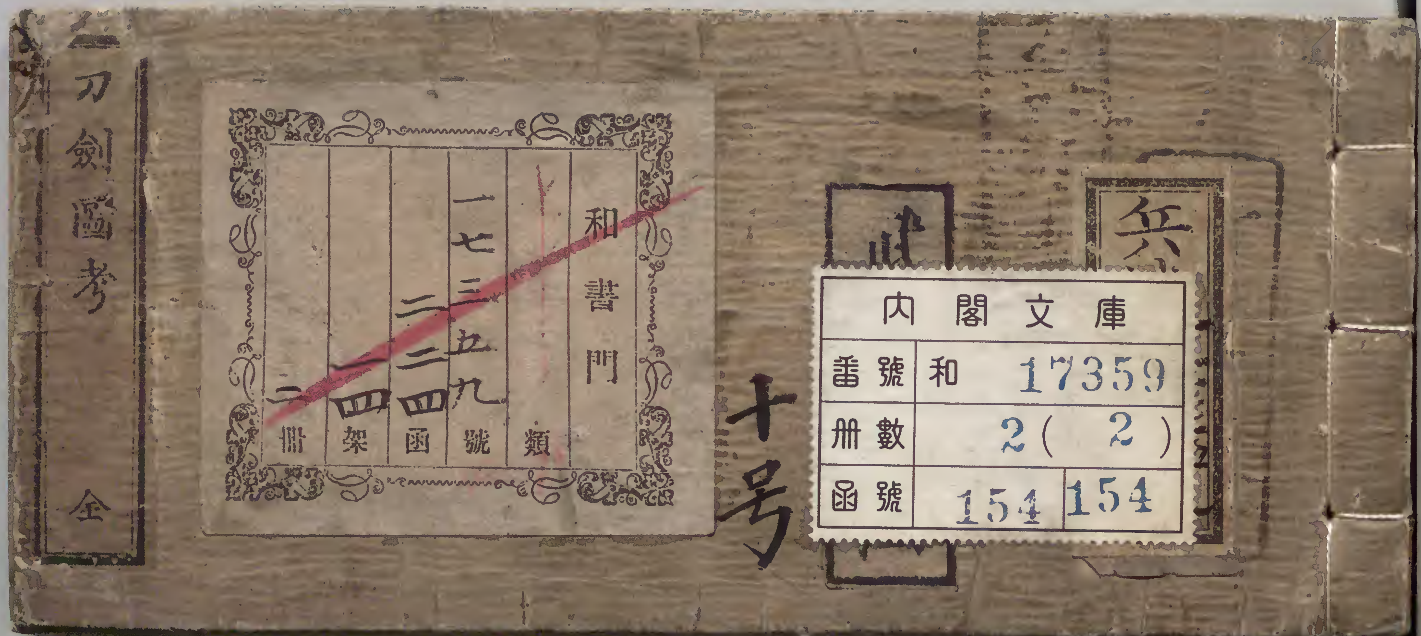 刀劍圖考
全
和書門
類
一七三五九號
二二四函
一四架
二冊
十号
兵
內閣文庫
番號 和 17359
冊數 2(2)
函號 154 154